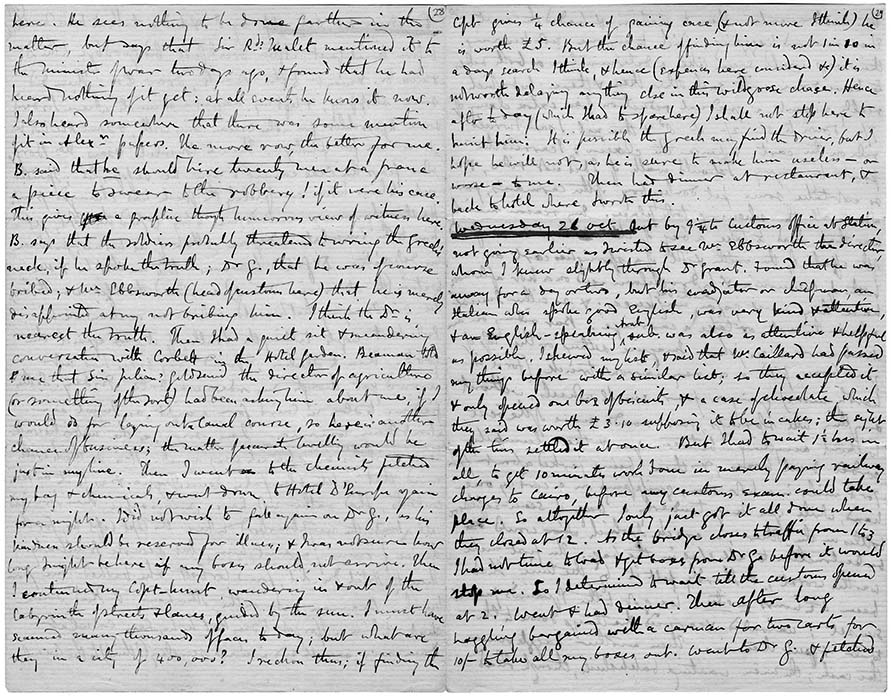 28
here. He sees nothing to be done farther in the
matter, but says that Sir Rd. Malet mentioned it to
the minister of war two days ago, & found that he had
heard nothing of it yet; at all events he knows it now.
I also heard somewhere that there was some mention
of it in Alexn papers. The more row, the better for me.
B. said that he should hire twenty men at a franc
a piece to swear to the robbery! if it were his case.
This gives a graphic though humorous view of witness here.
B. says that the soldiers probably threatened to wring the Greek's
neck, if he spoke the truth; Dr G., that he was of course
bribed; & Mr Ebbsworth (head of customs here) that he is merely
disappointed at my not bribing him. I think the Dr is
nearest the truth. Then I had a quiet sit & meandering
conversation with Corbett in the Hotel garden. Beaman told
me that Sir Julian Goldsmid the director of agriculture
(or something of the sort) had been asking him about me, if I
would do for laying out canal course, so here is another
chance of business; the matter of accurate levelling would be
just in my line. Then I went to the chemists fetched
my bag & chemicals, & went down to Hotel D'Europe again
for a night. I did not wish to fall again on Dr G., as his
kindness should be reserved for illness; & I was not sure how
long I might be here if my boxes should not arrive. Then
I continued my Copt-hunt, wandering in & out of the
labyrinth of streets & lanes, guided by the sun. I must have
scanned many thousands of faces today; but what are
they in a city of 400,000? I reckon thus; if finding the
29
Copt gives ¼ chance of gaining case (& not more I think) he
is worth £5. But the chance of finding him is not 1 in 20 in
a days search I think, & hence (expenses here considered &c) it is
not worth delaying anything else in this wildgoose chase. Hence
after ½ day (which I had to spare here) I shall not stop here to
hunt him. It is possible the Greek may find the Druin, but I
hope he will not, as he is sure to make him useless – or
worse – to me. Then had dinner at restaurant, &
back to hotel where I wrote this.
Wednesday 26 Oct. Out by 9¼ to Customs office at station,
not going earlier as I wished to see Mr Ebbsworth the director
whom I knew slightly through Dr Grant. Found that he was
away for a day or two, but his coadjutor or chef, an
Italian who spoke good English, was very kind & attentive,
& an English-speaking Arab sub. was also as attentive & helpful
as possible. I shewed my list, & said that Mr Caillard had passed
my things before with a similar list; so they accepted it
& only opened one box of biscuits, & a case of chocolate which
they said was worth £3.10 supposing it to be in cakes; the sight
of the tins settled it at once. But I had to wait 1½ hrs in
all, to get 10 minutes work done in merely paying railway
charges to Cairo, before any customs exam. could take
place. So altogether I only just got it all done when
they closed at 12. As the bridge closes to traffic from 1 to 3
I had not time to load & get boxes from Dr G before it would
stop me. So I determined to wait till the customs opened
at 2. Went & had dinner. Then after long
haggling bargained with a carman for two carts for
10/- to take all my boxes out. Went to Dr G. & fetched